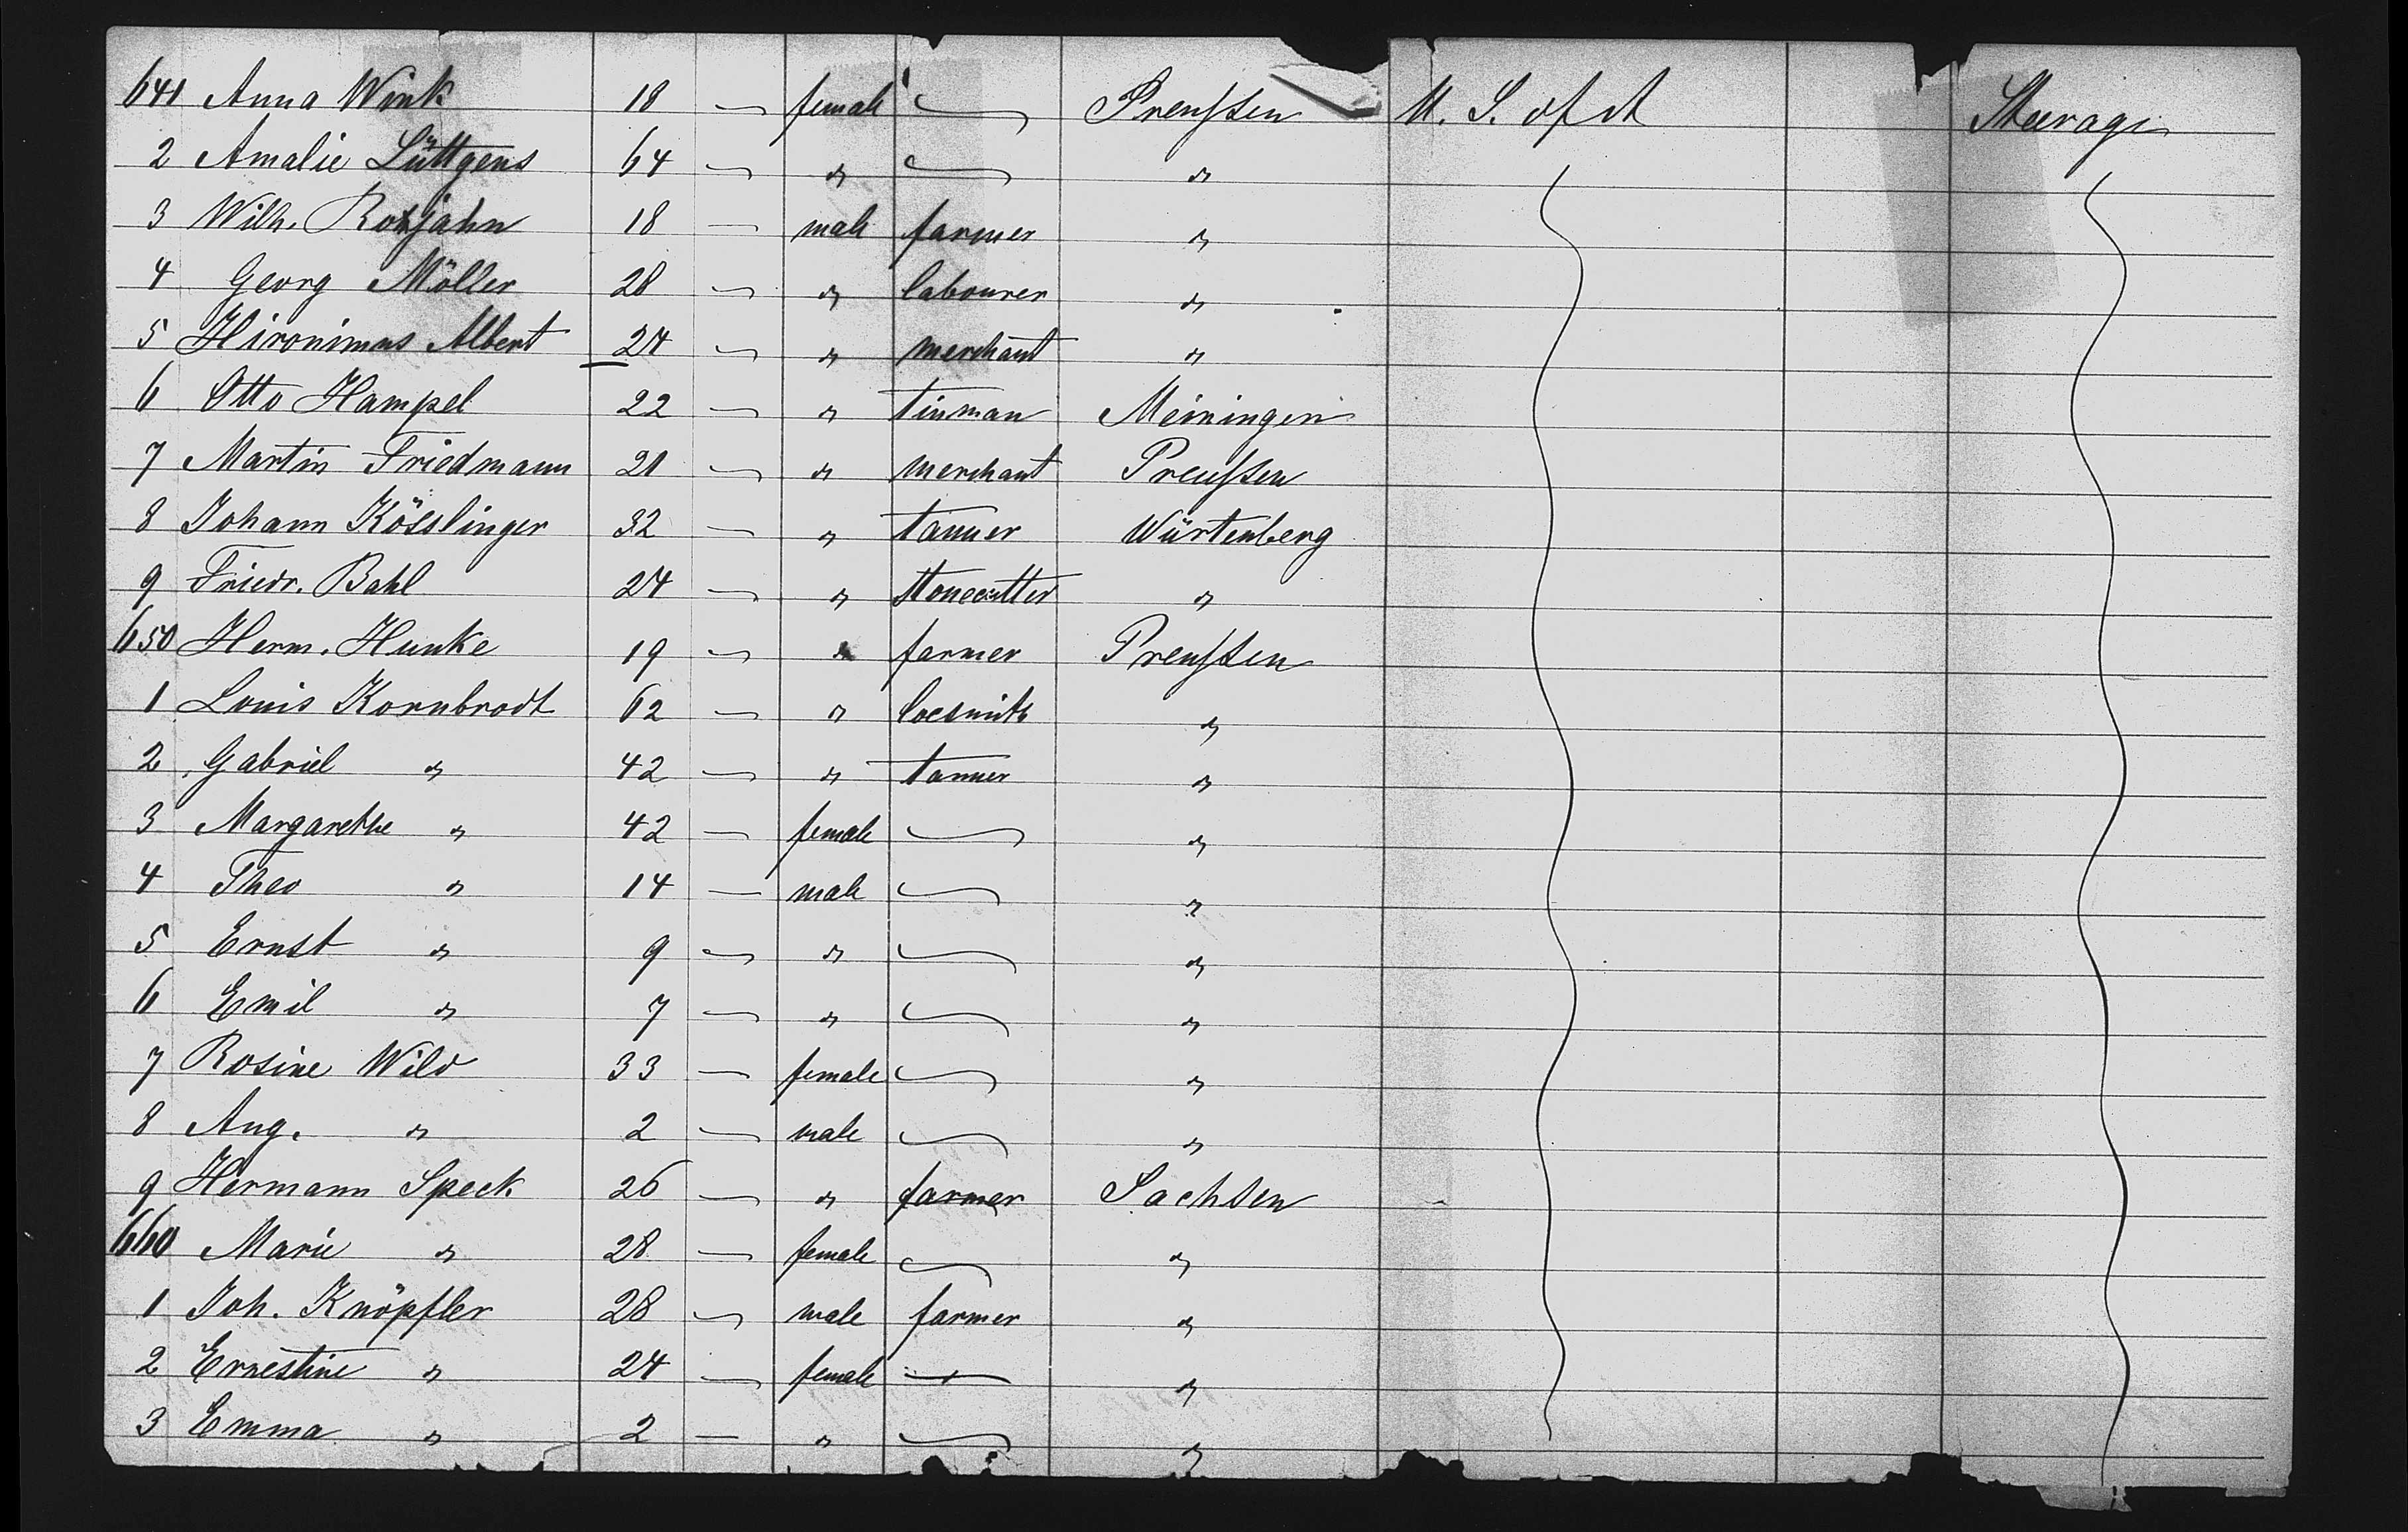 641 Anna Wink 18 — female — Preußen U. S. of A Steerage
2 Amalie Lüttgens 64 — " — "
3 Wilh. Rotjahn 18 — male farmer "
4 Georg Möller 28 — " labourer "
5 Hironimus Albert 24 — " merchant "
6 Otto Hampel 22 — " tinman Meiningen
7 Martin Friedmann 21 — " merchant Preußen
8 Johann Kösslinger 32 — " tanner Würtenberg
9 Friedr. Bahl 24 — " stonecutter "
650 Herm. Hunke 19 — " farmer Preußen
1 Louis Kornbrodt 62 — " locsmith "
2 Gabriel " 42 — " tanner "
3 Margarethe " 42 — female — "
4 Theo " 14 — male — "
5 Ernst " 9 — " — "
6 Emil " 7 — " — "
7 Rosine Wild 33 — female — "
8 Aug. " 2 — male — "
9 Hermann Speck 26 — " farmer Sachsen
660 Marie " 28 — female — "
1 Joh. Knöpfler 28 — male farmer "
2 Ernestine " 24 — female — "
3 Emma " 2 — " — "